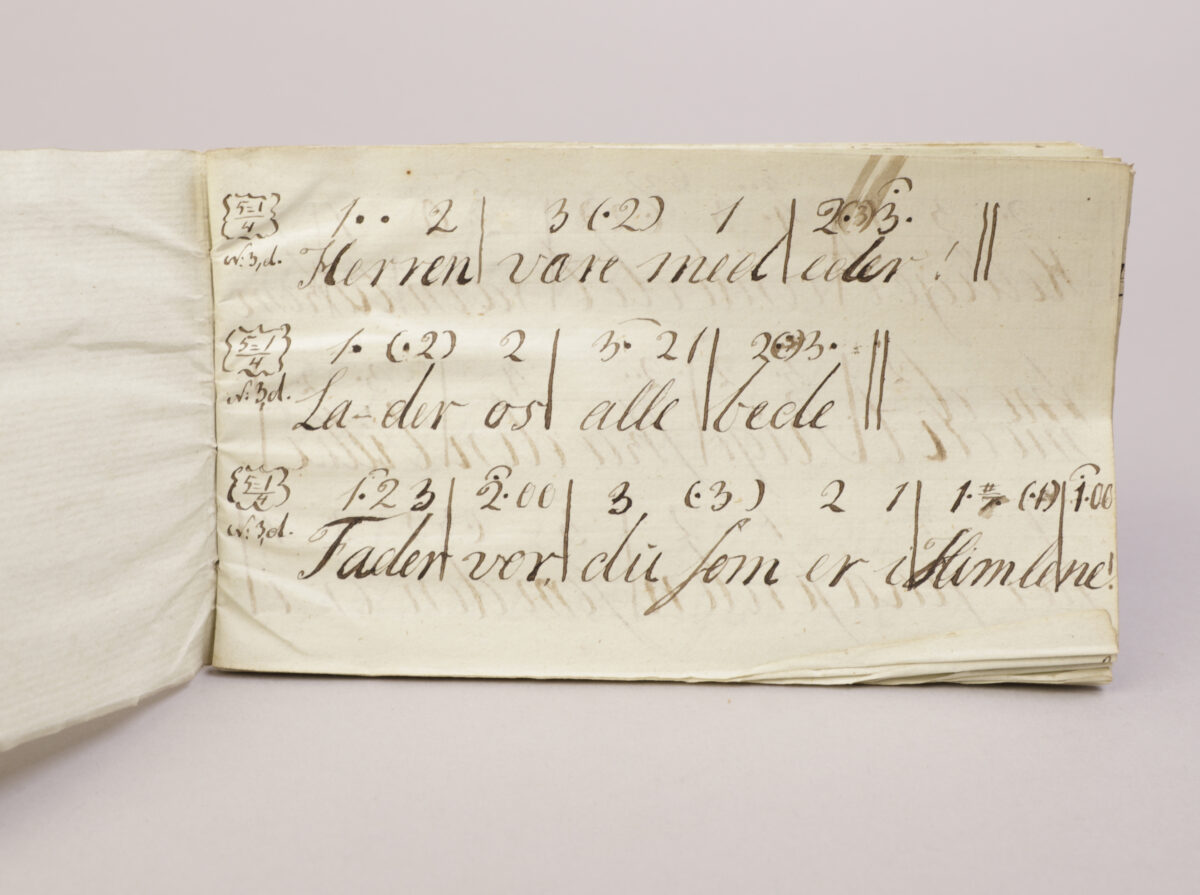 5=1/4 1·· 2 | 3 (·2) 1 | 2(·3)3· ||
N: 3, d. Herren | være med | eder! ||
5=1/4 1· (·2) 2 | 3· 2 1 | 2(·3)3· ||
N: 3, d. La-der os | alle | bede ||
5=1/4 1·2 3 | 2·00 | 3 (·3) 2 1 | 1·# (·1) | 1·00
N: 3, d. Fader | vor, | du som er i | Himle|ne!